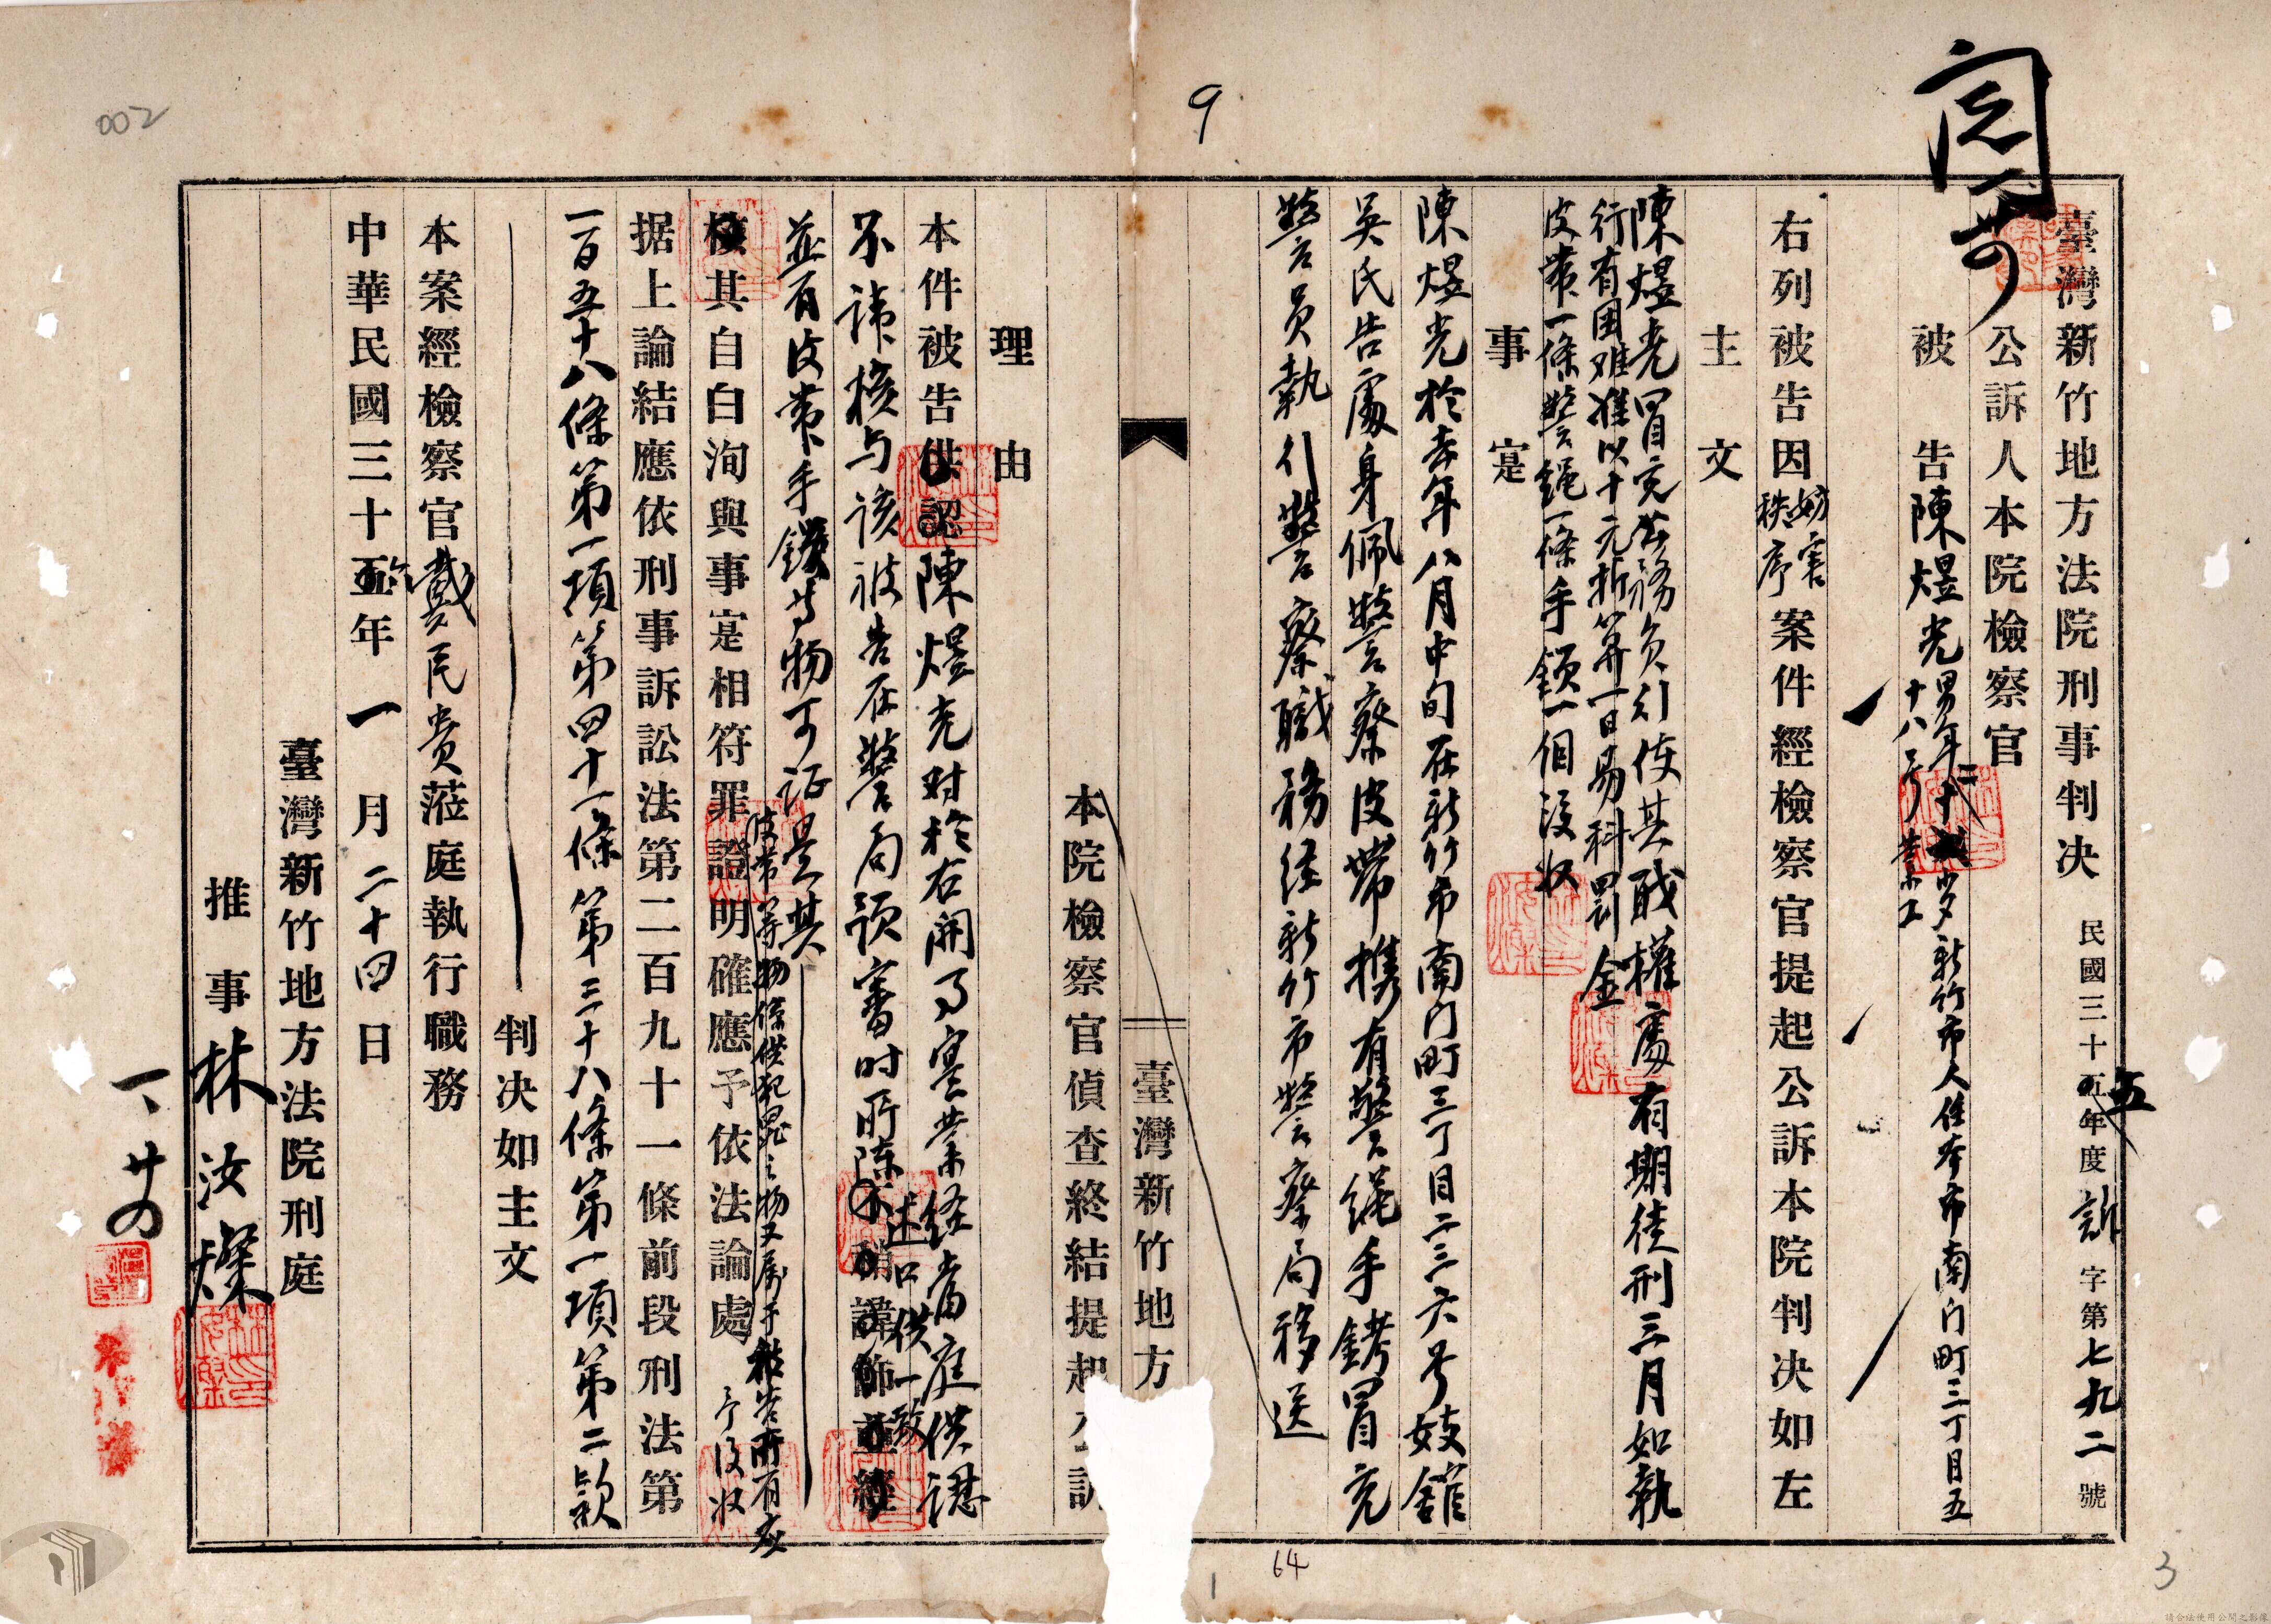 002
9
閱
一廿四
臺灣新竹地方法院刑事判决 民國三十五年度訴字第七九二號
公訴人本院檢察官
被告陳煜光男年二十歲新竹市人住本市南门町三丁目五
十八号業工
右列被告因妨害秩序案件經檢察官提起公訴本院判决如左
主文
陳煜光冒充公務員行使其职權處有期徒刑三月如執
行有困难准以十元折算一日易科罰金
皮帶一條警繩一條手鎖一個沒收
事寔
陳煜光於去年八月中旬在新竹市南门町三丁目二三六号妓館
吳氏告處身佩警察皮带携有警繩手銬冒充
警官員執行警察職務経新竹市警察局移送
臺灣新竹地方
本院檢察官偵查終結提起公訴
理由
本件被告陳煜光对於右開事寔業経當庭供認
不諱核与該被告在警局預審时所陳述口供一致
並有皮带手鎖等物可証是其
皮帶等物係供犯罪之物又属于被告所有應
予沒收
核其自白洵與事寔相符罪證明確應予依法論處
据上論結應依刑事訴訟法第二百九十一條前段刑法第
一百五十八條第一項第四十一條第三十八條第一項第二款
判决如主文
本案經檢察官戴民貴蒞庭執行職務
中華民國三十五年一月二十四日
臺灣新竹地方法院刑庭
推事林汝燦
一、廿四
64
1
3
請合法使用公開之影像